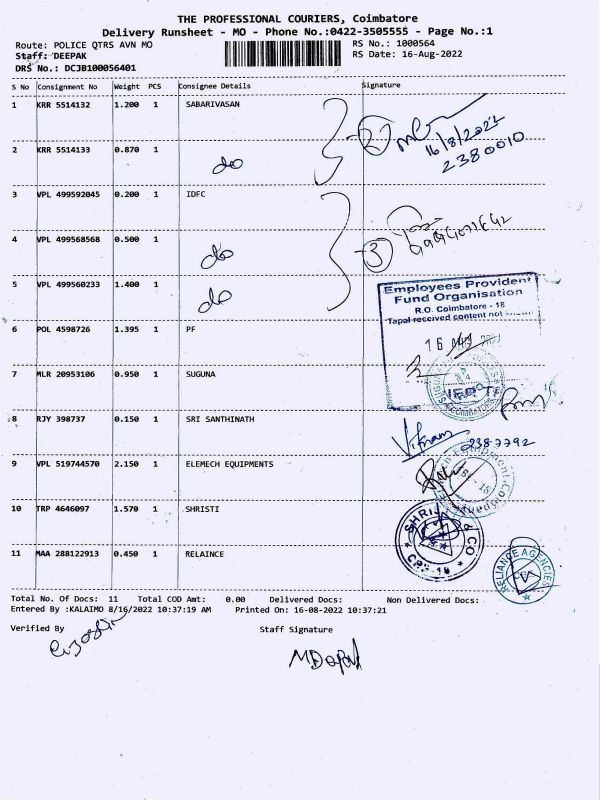 THE PROFESSIONAL COURIERS, Coimbatore
Delivery Runsheet - MO - Phone No.:0422-3505555 - Page No.:1
Route: POLICE QTRS AVN MO RS No.: 1000564
Staff: DEEPAK RS Date: 16-Aug-2022
DRS No.: DCJB100056401
S No Consignment No Weight PCS Consignee Details Signature
1 KRR 5514132 1.200 1 SABARIVASAN
2
16/8/2022
2380010
2 KRR 5514133 0.870 1 do
3 VPL 499592045 0.200 1 IDFC
3
4 VPL 499568568 0.500 1 do
5 VPL 499560233 1.400 1 do
Employees Provident
Fund Organisation
R.O. Coimbatore - 18
Tapal received content not
6 POL 4598726 1.395 1 PF
16
7 MLR 20953106 0.950 1 SUGUNA
8 RJY 398737 0.150 1 SRI SANTHINATH
Vikram 2387792
9 VPL 519744570 2.150 1 ELEMECH EQUIPMENTS
10 TRP 4646097 1.570 1 SHRISTI
11 MAA 288122913 0.450 1 RELAINCE
RELIANCE AGENCIES
Total No. Of Docs: 11 Total COD Amt: 0.00 Delivered Docs: Non Delivered Docs:
Entered By :KALAIMO 8/16/2022 10:37:19 AM Printed On: 16-08-2022 10:37:21
Verified By Staff Signature